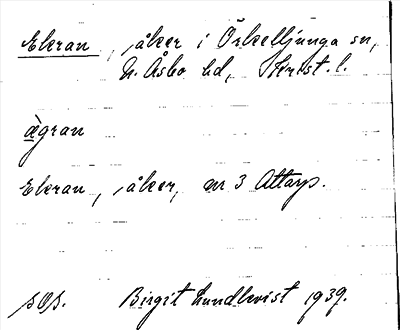 Ekran, åker i Örkelljunga sn,
N. Åsbo hd, Krist. l.
ägran
Ekran, åker, 3 Attarp.
sOs. Birgit Lundkvist 1939.